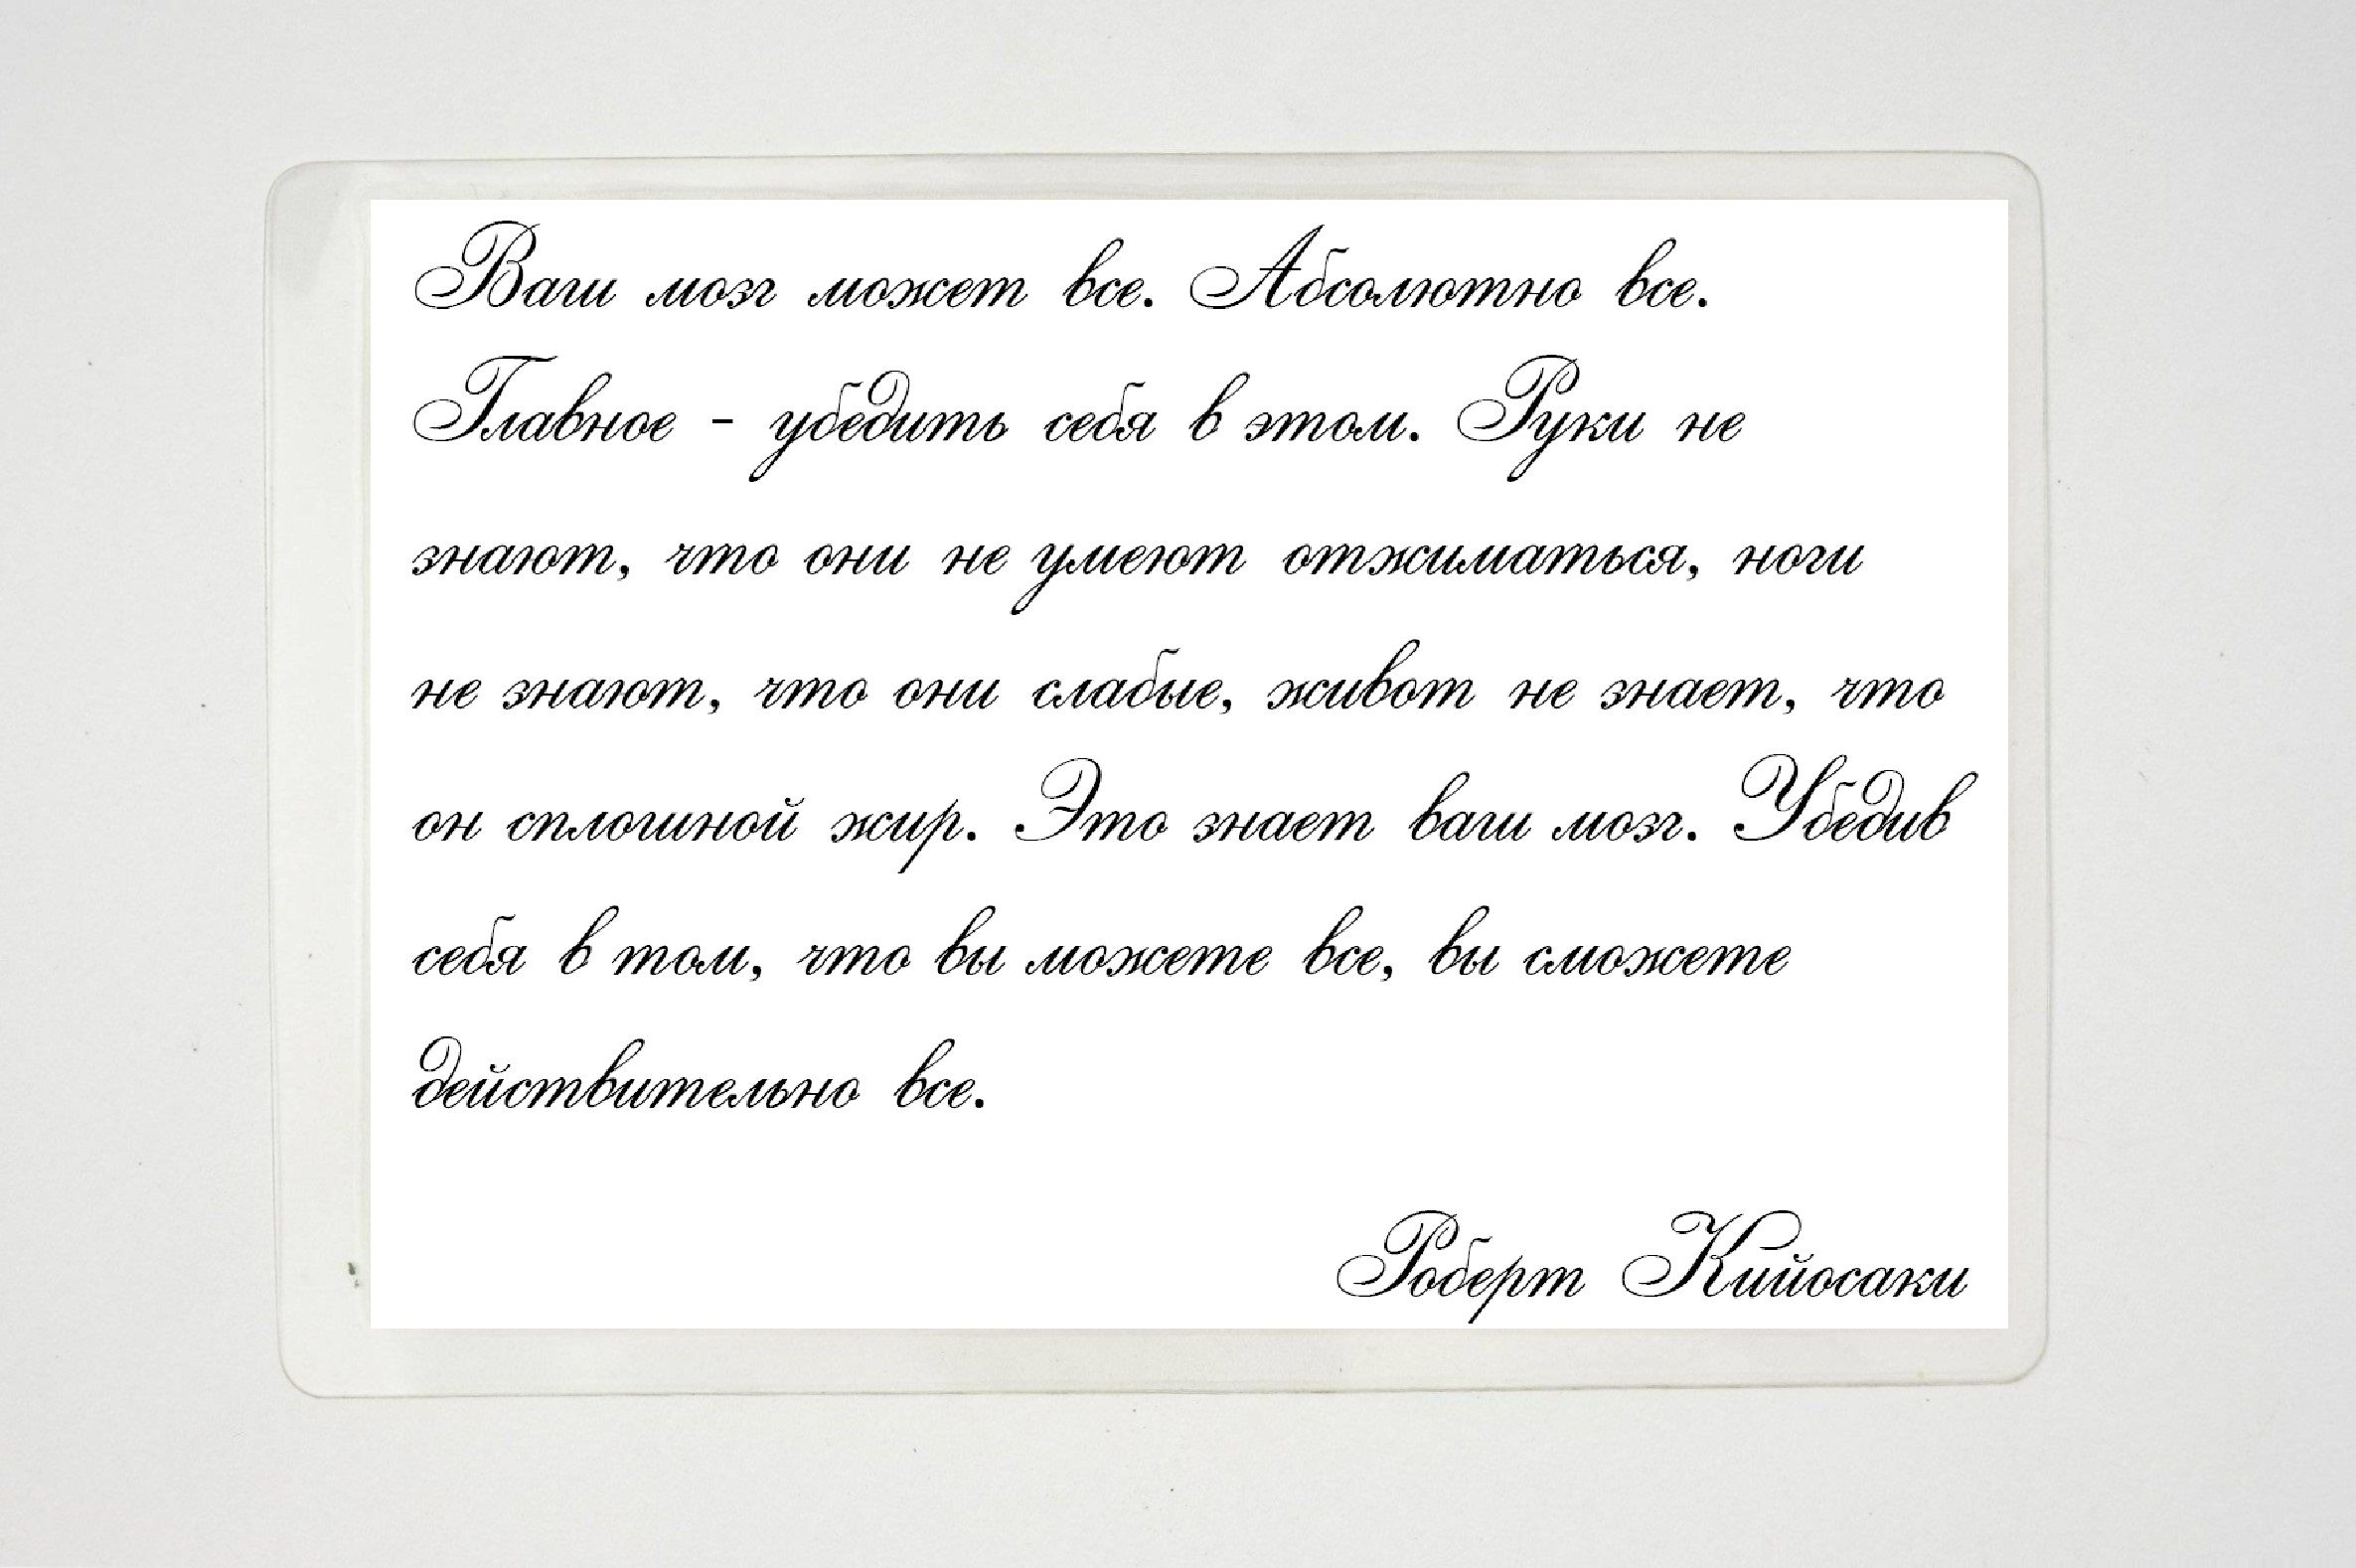 Ваш мозг может все. Абсолютно все.
Главное - убедить себя в этом. Руки не
знают, что они не умеют отжиматься, ноги
не знают, что они слабые, живот не знает, что
он сплошной жир. Это знает ваш мозг. Убедив
себя в том, что вы можете все, вы сможете
действительно все.
Роберт Кийосаки